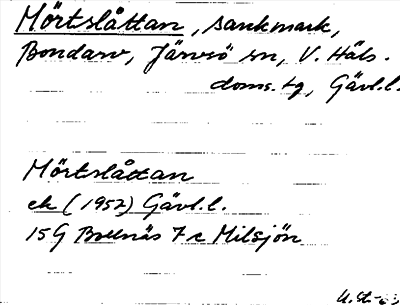 Mörtslåttan, sankmark,
Bondarv, Järvsö sn, V. Häls.
doms. tg, Gävl.l.
Mörtslåttan
ek (1952) Gävl.l.
15G Bollnäs 7c Milsjön